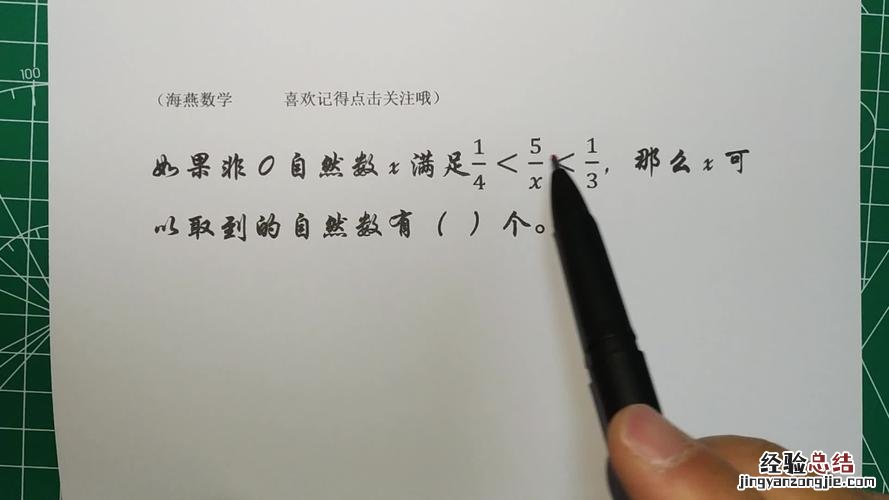 100
(海燕数学 喜欢记得点击关注哦)
如果非0自然数x满足1/4<5/x<1/3，那么x可
以取到的自然数有( )个。
经验总结
jingyanzongjie.com